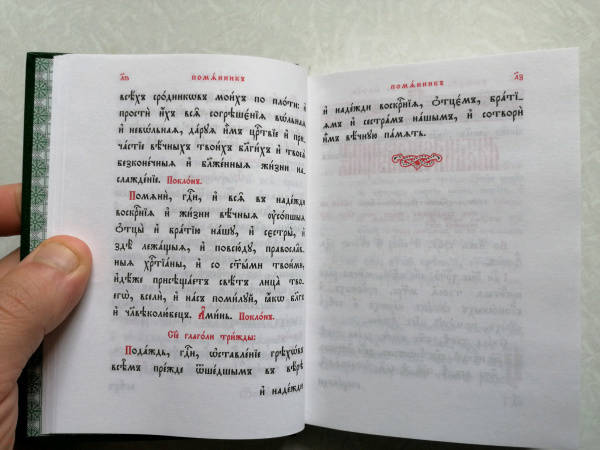 л҃в
помѧ́нникъ
всѣ́хъ сро́дникѡвъ мои́хъ по пло́ти: и҆
простѝ и҆̀хъ всѧ̑ согрѣшє́нїѧ вѡ́льнаѧ
и҆ невѡ́льнаѧ, да́рꙋѧ и҆̀мъ црⷭ҇твїе и҆ при-
ча́стїе вѣ́чныхъ твои́хъ бл҃ги́хъ и҆ твоеѧ̀
безконе́чныѧ и҆ бл҃же́нныѧ жи́зни на-
слажде́нїе. Покло́нъ.
Помѧнѝ, гдⷭ҇и, и҆ всѧ̑ въ наде́жди
воскрⷭ҇нїѧ и҆ жи́зни вѣ́чныѧ ᲂу҆со́пшыѧ
ѻ҆тцы̀ и҆ бра́тїю на́шꙋ, и҆ сєстры̀, и҆
здѣ̀ лежа́щыѧ, и҆ повсю́дꙋ, правосла́в-
ныѧ хрⷭ҇тїа́ны, и҆ со ст҃ы́ми твои́ми,
и҆дѣ́же присѣща́етъ свѣ́тъ лица̀ тво-
егѡ̀, вселѝ, и҆ на́съ поми́лꙋй, ꙗ҆́кѡ бл҃гъ
и҆ чл҃вѣколю́бецъ. А҆ми́нь. Покло́нъ.
Сїѐ глаго́ли три́жды:
Пода́ждь, гдⷭ҇и, ѡ҆ставле́нїе грѣхѡ́въ
всѣ̑мъ пре́жде ѿше́дшымъ въ вѣ́рѣ
и҆ наде́жди
помѧ́нникъ
л҃г
и҆ наде́жди воскрⷭ҇нїѧ, ѻ҆тцє́мъ, бра́тїѧмъ и҆ сестра́мъ на́шымъ, и҆ сотворѝ
и҆̀мъ вѣ́чнꙋю па́мѧть.